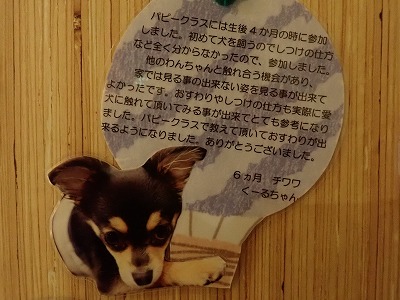 パピークラスには生後4か月の時に参加
しました。初めて犬を飼うのでしつけの仕方
など全く分からなかったので、参加しました。
他のわんちゃんと触れ合う機会があり、
家では見る事の出来ない姿を見る事が出来て
よかったです。おすわりやしつけの仕方も実際に愛
犬に触れて頂いてみる事が出来てとても参考になり
ました。パピークラスで教えて頂いておすわりが出
来るようになりました。ありがとうございました。
6ヵ月 チワワ
くーるちゃん